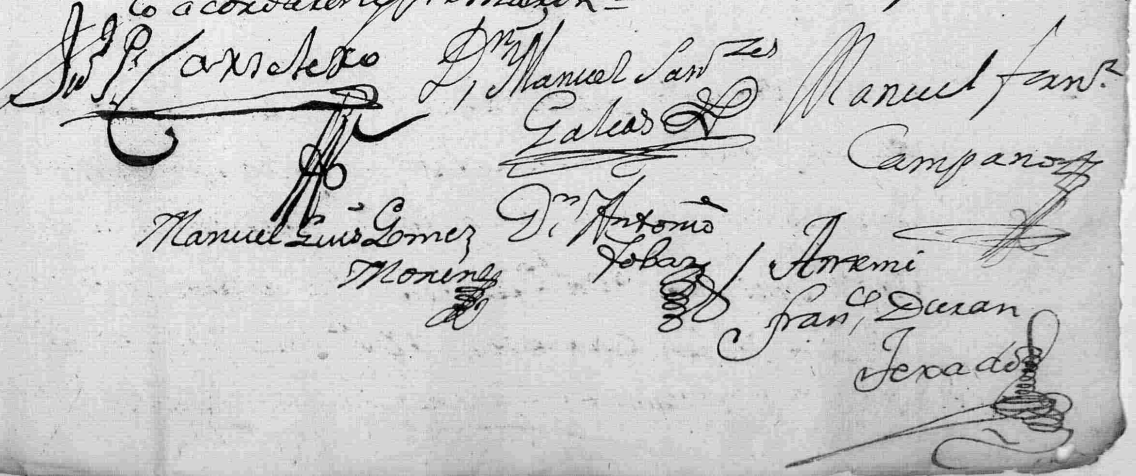 lo acordaron y firmaron
Carretero
Dn Manuel Sanzes
Galeas
Manuel fernz
Campano
Manuel Luis Gomez
Moreno
Dn Antonio
Tobar
Antemi
franco Duran
Texado